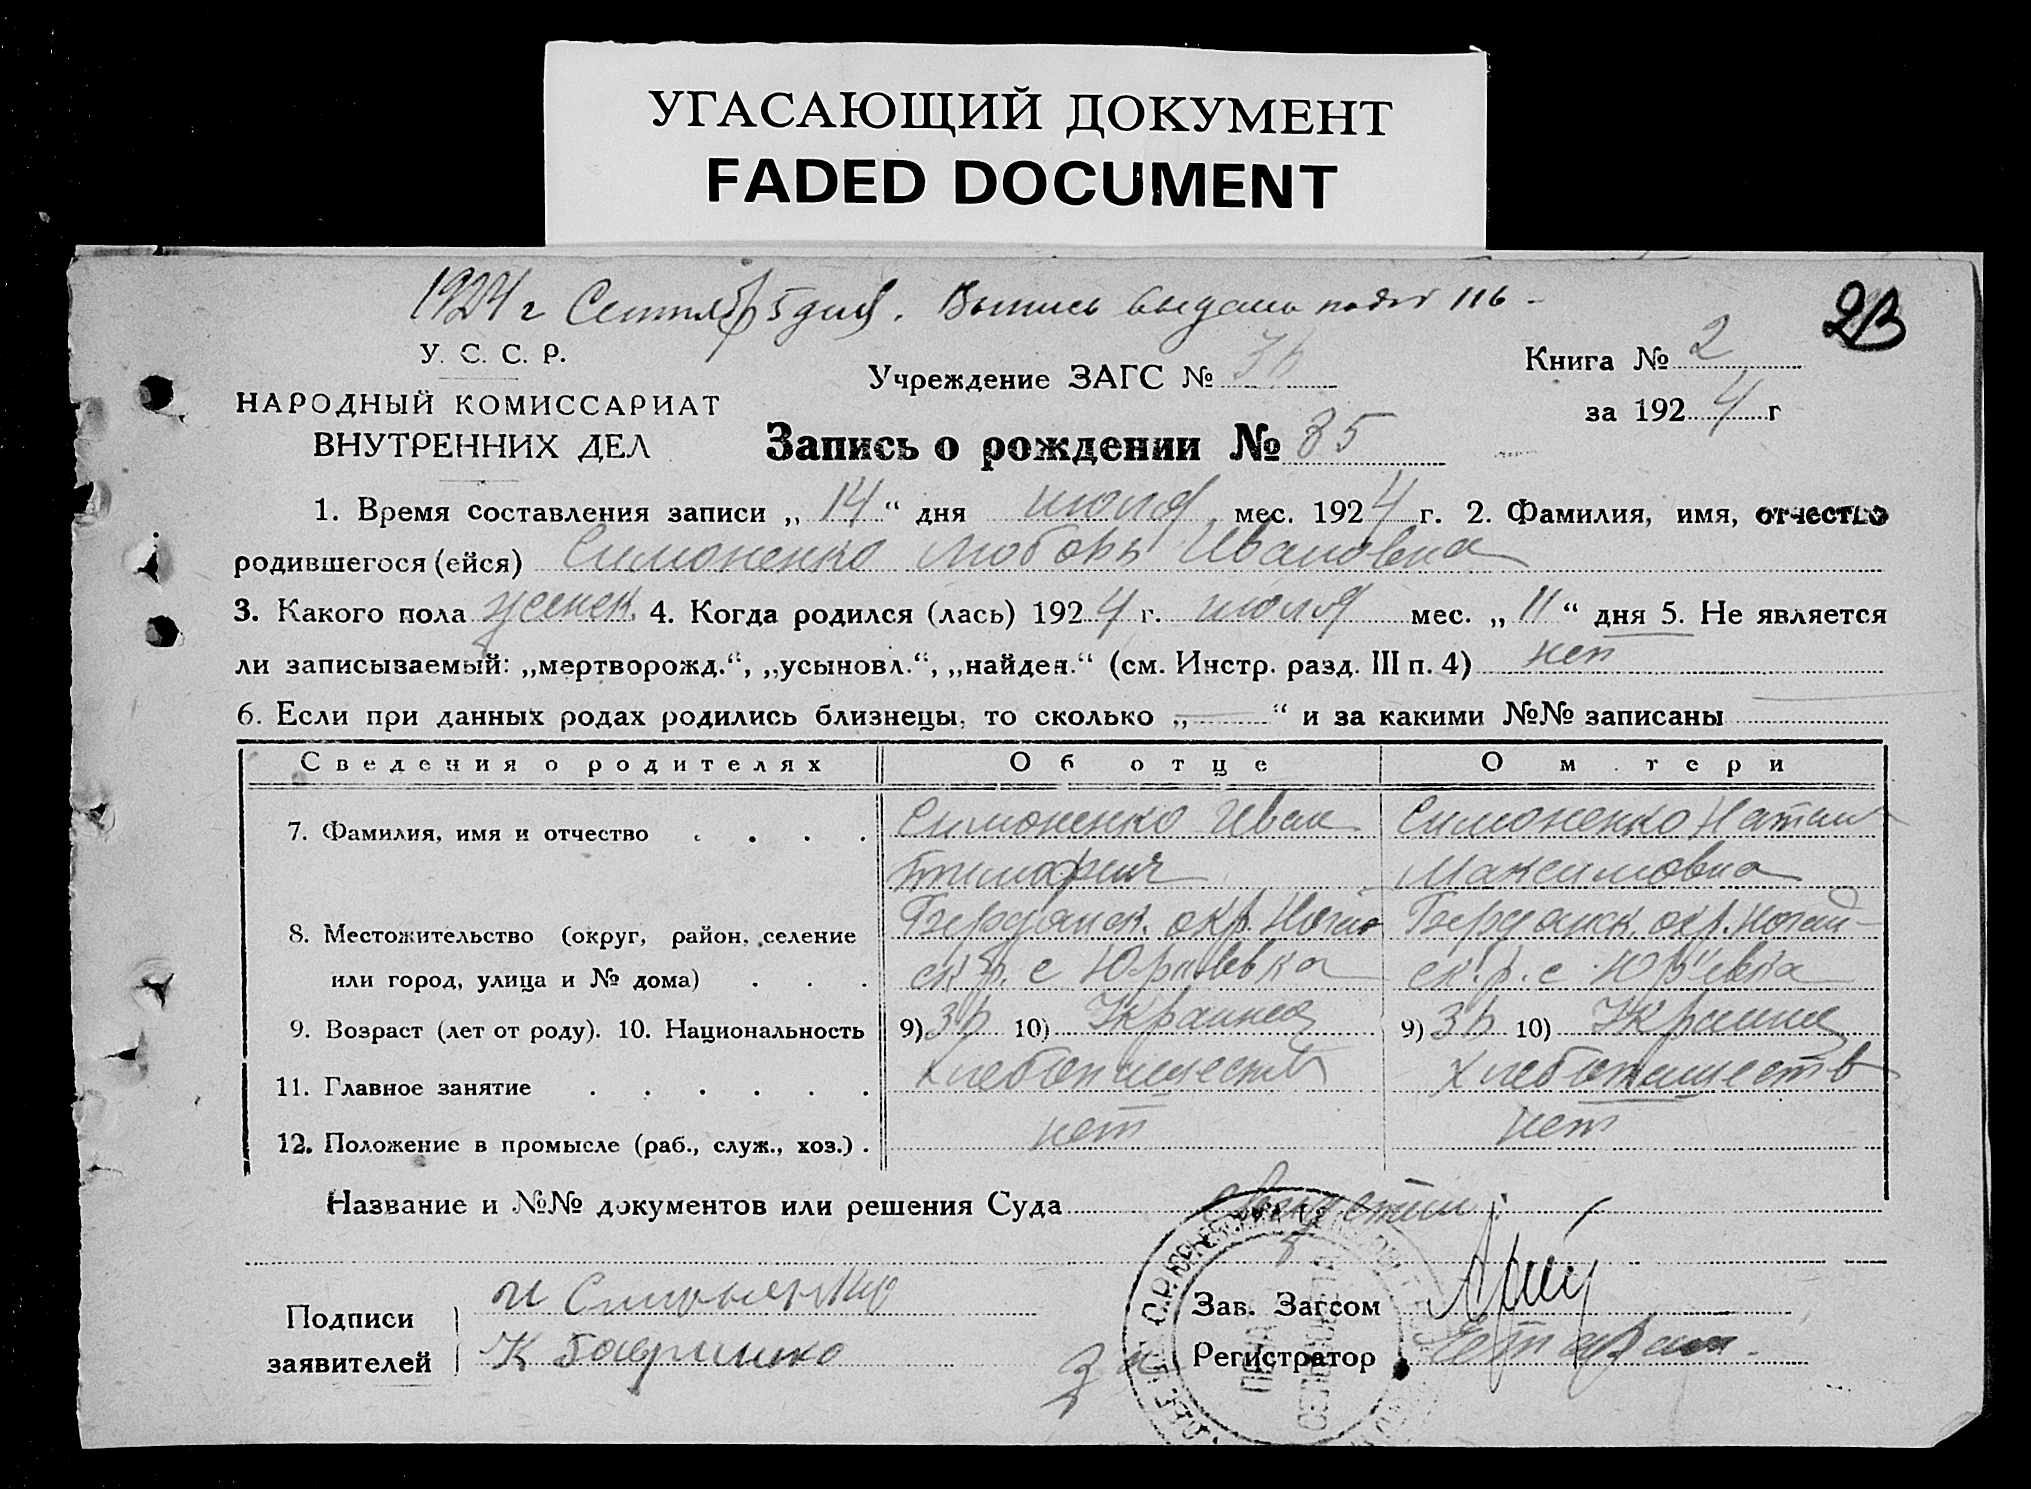 УГАСАЮЩИЙ ДОКУМЕНТ
FADED DOCUMENT
1924 г Сентября 5 дня. Выпись выдана под № 116 -
2
У. С. С. Р.
Учреждение ЗАГС №
Книга № 2
НАРОДНЫЙ КОМИССАРИАТ
за 1924 г
ВНУТРЕННИХ ДЕЛ
Запись о рождении № 35
1. Время составления записи „ 14 “ дня июля мес. 1924 г. 2. Фамилия, имя, отчество
родившегося (ейся) Симоненко Любовь Ивановна
3. Какого пола женск. 4. Когда родился (лась) 1924 г. июля мес. „ 11 “ дня 5. Не является
ли записываемый: „мертворожд.“, „усыновл.“, „найден.“ (см. Инстр. разд. III п. 4) нет
6. Если при данных родах родились близнецы, то сколько „ — “ и за какими №№ записаны
Сведения о родителях Об отце О м тери
7. Фамилия, имя и отчество . . . . Симоненко Иван Симоненко Натал
Максимовна
8. Местожительство (округ, район, селение Бердянск. окр. Ногай Бердянск. окр. Ногай-
или город, улица и № дома) . . . ск. р. с Юрьевка ск. р. с Юрьевка
9. Возраст (лет от роду). 10. Национальность 9) 36 10) 9) 36 10)
11. Главное занятие . . . . . . хлебопашеств хлебопашеств
12. Положение в промысле (раб., служ., хоз.) . нет нет
Название и №№ документов или решения Суда
Подписи и Симоненко Зав. Загсом
заявителей К Регистратор